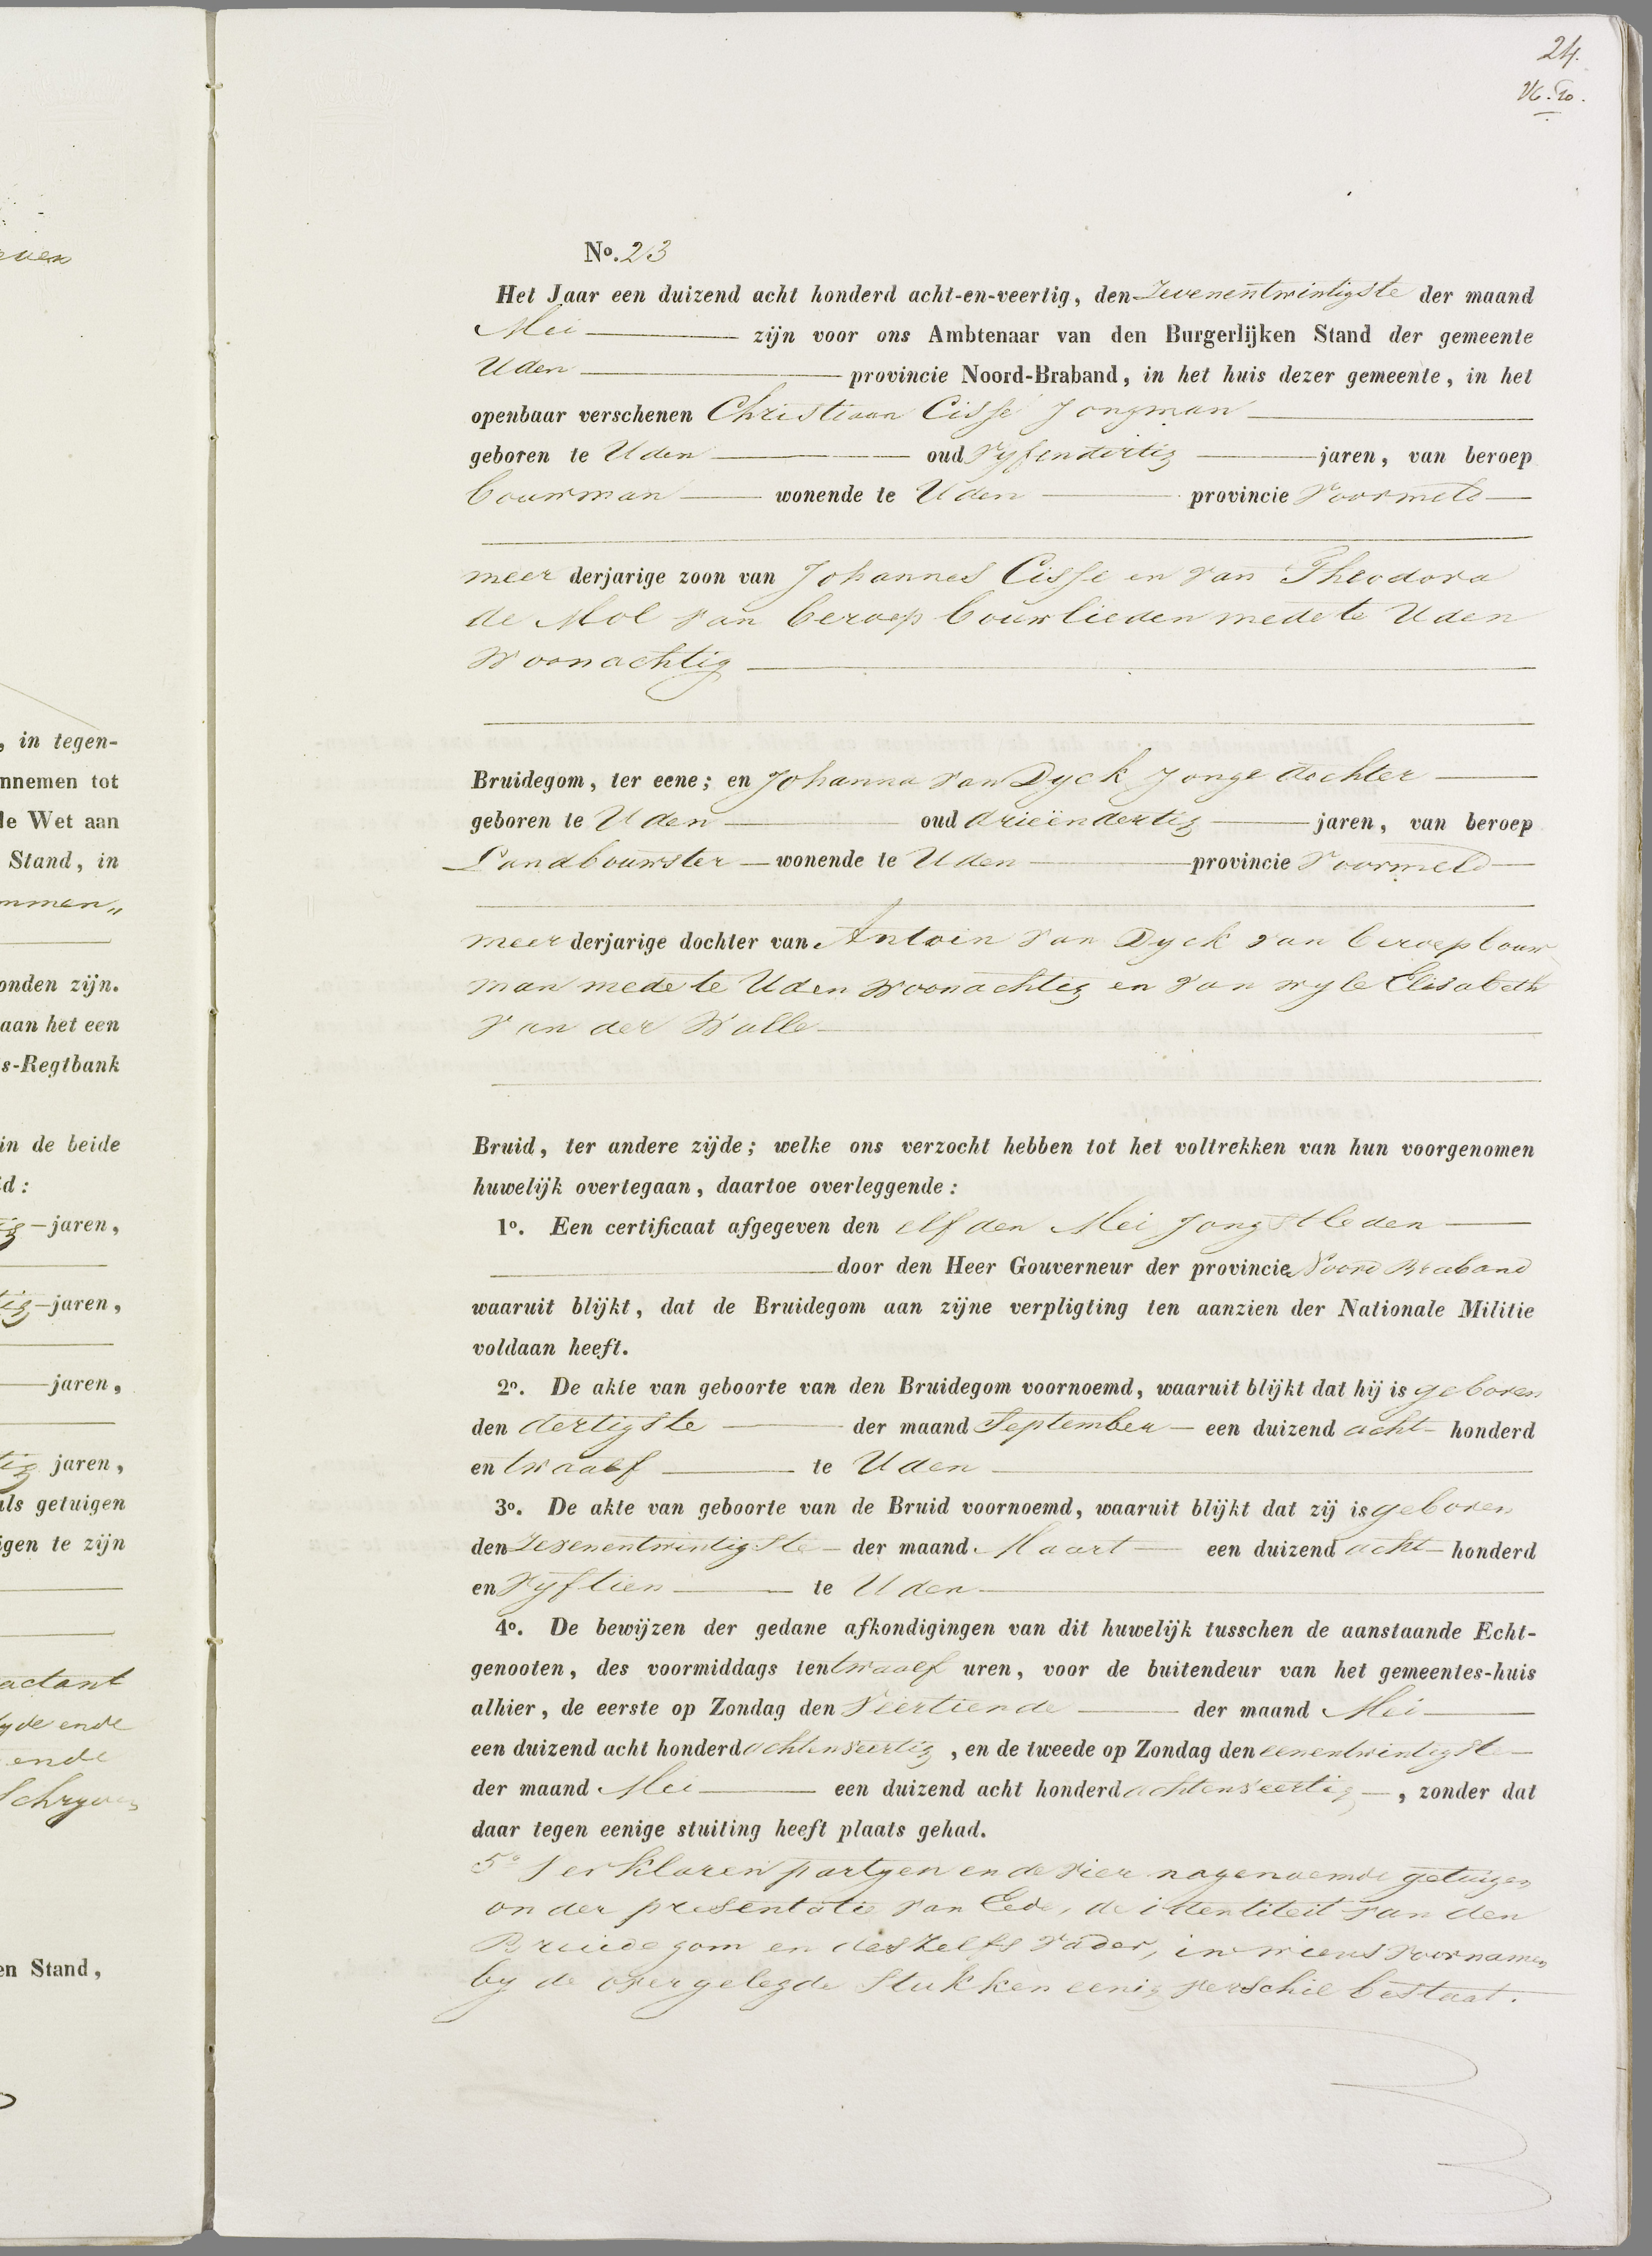 24.
N°. 23
Het Jaar een duizend acht honderd acht-en-veertig, den Zevenentwintigste der maand
Mei zijn voor ons Ambtenaar van den Burgerlijken Stand der gemeente
Uden provincie Noord-Braband, in het huis dezer gemeente, in het
openbaar verschenen Christiaan Cisse Jongman
geboren te Uden oud vyfendertig jaren, van beroep
bouwman wonende te Uden provincie voormeld
meer derjarige zoon van Johannes Cisse en van Theodora
de Mol van beroep bouwlieden mede te Uden
woonachtig
Bruidegom, ter eene; en Johanna van Dyck Jonge dochter
geboren te Uden oud drieëndertig jaren, van beroep
Landbouwster wonende te Uden provincie voormeld
meer derjarige dochter van Antoin van Dyck van beroep bouw
man mede te Uden woonachtig en van wyle Elisabeth
van der Walle
Bruid, ter andere zijde; welke ons verzocht hebben tot het voltrekken van hun voorgenomen
huwelijk overtegaan, daartoe overleggende:
1°. Een certificaat afgegeven den elfden Mei Jongstleden
door den Heer Gouverneur der provincie Noord Braband
waaruit blijkt, dat de Bruidegom aan zijne verpligting ten aanzien der Nationale Militie
voldaan heeft.
2°. De akte van geboorte van den Bruidegom voornoemd, waaruit blijkt dat hij is geboren
den dertigste der maand September een duizend acht honderd
en twaalf te Uden
3°. De akte van geboorte van de Bruid voornoemd, waaruit blijkt dat zij is geboren
den Zevenentwintigste der maand Maart een duizend acht honderd
en vyftien te Uden
4°. De bewijzen der gedane afkondigingen van dit huwelijk tusschen de aanstaande Echt-
genooten, des voormiddags ten twaalf uren, voor de buitendeur van het gemeentes-huis
alhier, de eerste op Zondag den veertiende der maand Mei
een duizend acht honderd achtenveertig, en de tweede op Zondag den eenentwintigste
der maand Mei een duizend acht honderd achtenveertig, zonder dat
daar tegen eenige stuiting heeft plaats gehad.
5° Verklaren partyen en de vier nagenoemde getuigen
onder presentatie van Eede, de identiteit van den
Bruidegom en deszelfs vader, in wiens voornamen
by de overgelegde Stukken eenig verschil bestaat.
, in tegen-
nnemen tot
le Wet aan
Stand, in
mmen„
onden zijn.
aan het een
s-Regtbank
in de beide
id:
jaren,
jaren,
jaren,
jaren,
als getuigen
igen te zijn
ende
en Stand,